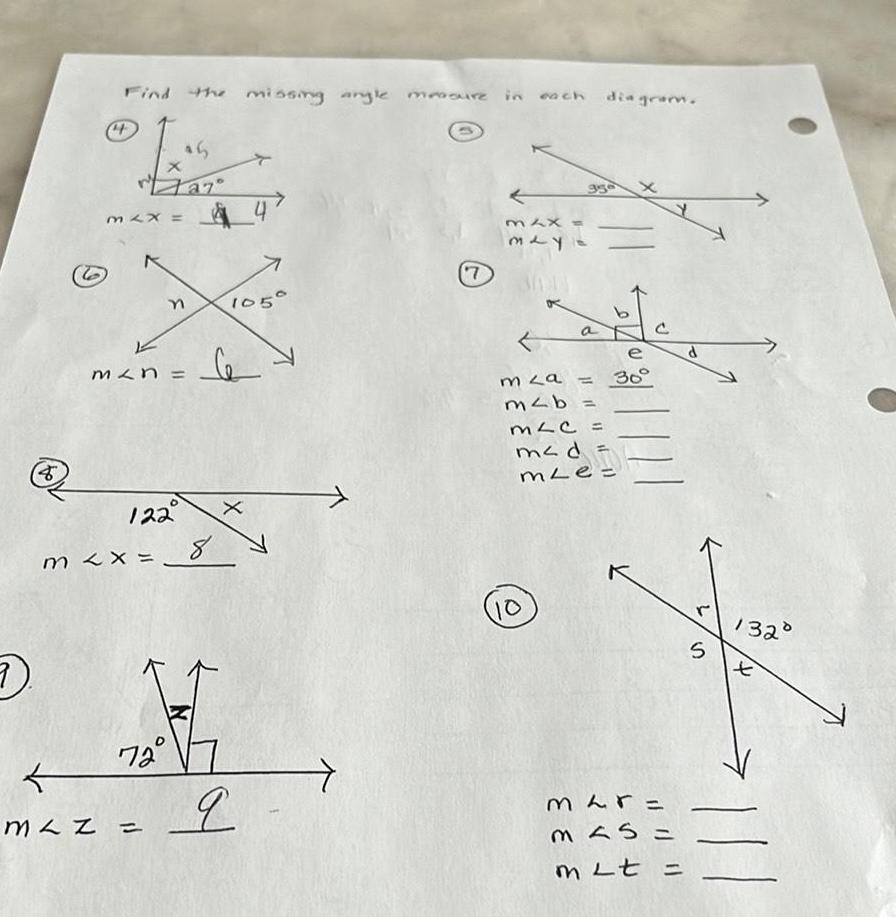 Find the missing angle measure in each diagram.
④
x
27°
m<x = 4
⑤
35° x
y
m<x = __
m<y = __
⑥
n 105°
m<n = 6
⑦
b
a c
e d
m<a = 30°
m<b = __
m<c = __
m<d = __
m<e = __
⑧
122° x
m<x = 8
9
z
72°
m<z = 9
⑩
r 132°
s t
m<r = __
m<s = __
m<t = __